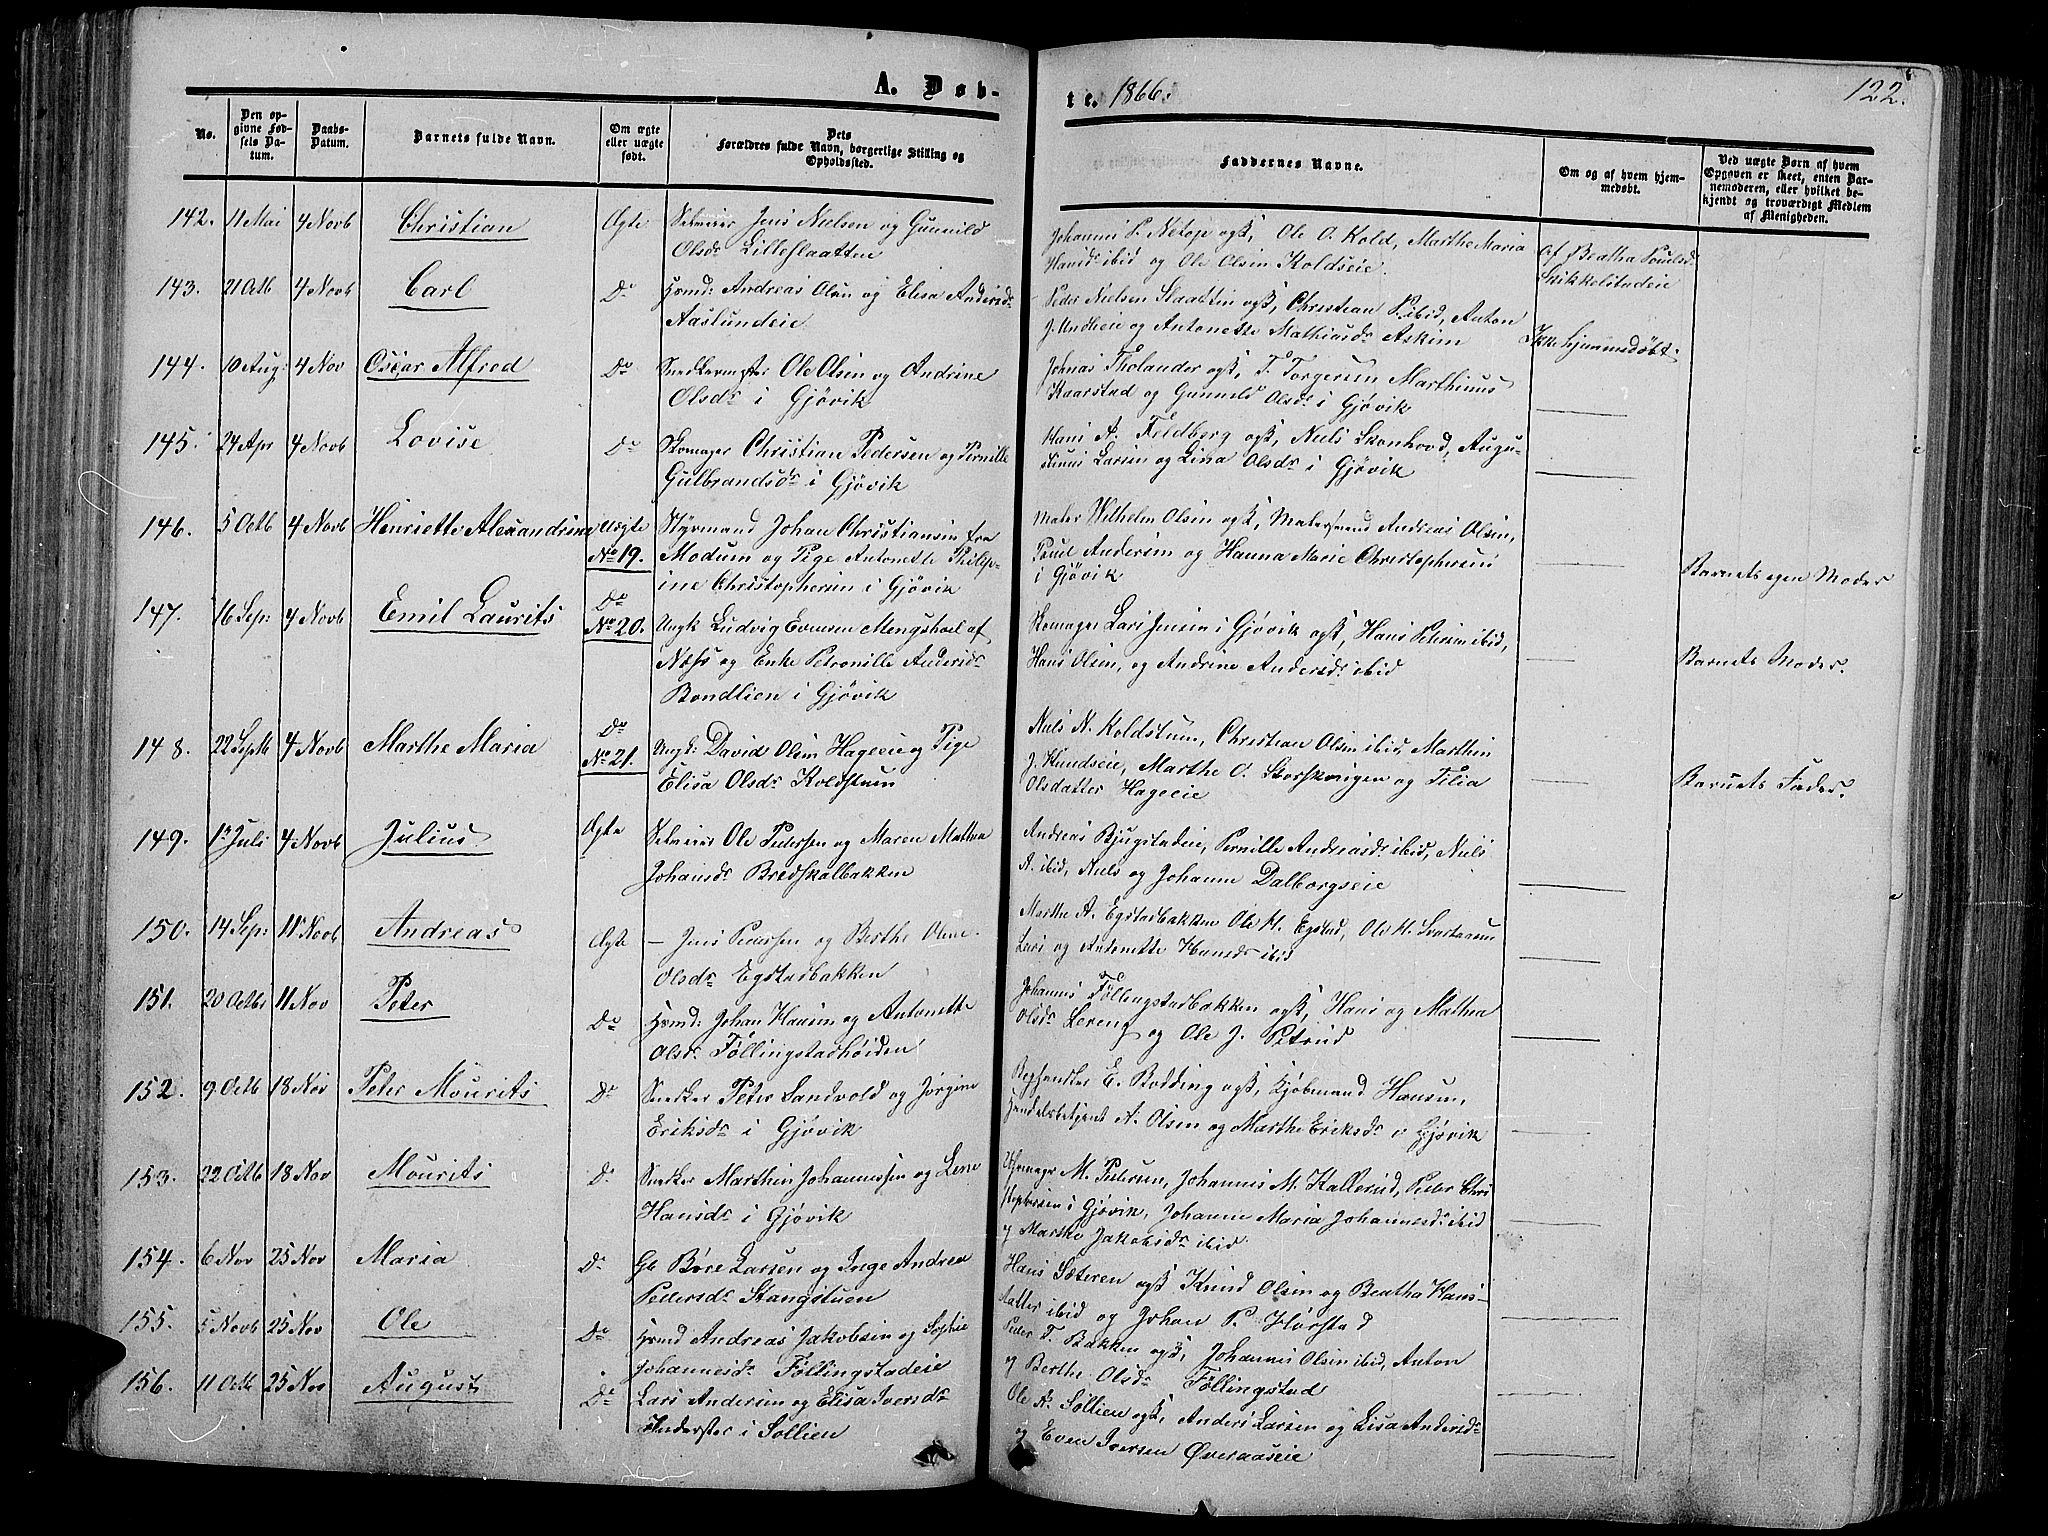 A. Døb-
te. 1866.
122.
No.
Den op-
givne Fød-
sels Da-
tum.
Daabs-
Datum.
Barnets fulde Navn.
Om ægte
eller uægte
født.
Dets
Forældres fulde Navn, borgerlige Stilling og
Opholdssted.
Faddernes Navne.
Om og af hvem hjem-
medøbt.
Ved uægte Børn af hvem
Opgaven er skeet, enten Bar-
nemoderen, eller hvilket be-
kjendt og troværdigt Medlem
af Menigheden.
142. 11 Mai 4 Novb Christian Ægte Selveier Jens Nielsen og Gunnild
Olsdr Lilleslaatten
Johannes P. ogs, Ole O. Kold, Marthe Maria
Hansdr ibid og Ole Olsen Koldseie.
af Beatha Poulsd.
Skikkelstadeie
143. 21 Octb 4 Novb Carl Do Hsmd: Andreas Olsen og Elisa Andersdr
Aaslundeie
Peder Nielsen Slaatten ogs, Christian P. ibid, Anton
J. Undlieie og Antonette Mathiasdr Askim
Ikke hjemmedøbt.
144. 10 Aug: 4 Nov Oscar Alfred Do Snedkermester Ole Olsen og Andrine
Olsdr i Gjøvik
Johnas Tholander ogs, T. Torgersen Marthinus
Kaarstad og Gunnild Olsdr i Gjøvik
145. 24 Apr 4 Novb Lovise Do Skomager Christian Pedersen og Pernille
Gulbrandsdr i Gjøvik
Hans A. Feldberg ogs, Niels Skonhovd, Augu-
stinus Larsen og Lina Olsdr i Gjøvik
146. 5 Octb 4 Novb Henriette Alexandrine Uægte
No 19.
Styrmand Johan Christiansen fra
Modum og Pige Antonette Philip-
ine Christophersen i Gjøvik
Maler Wilhelm Olsen ogs, Malersvend Andreas Olsen,
Poul Andersen og Hanna Marie Christophersen
i Gjøvik
Barnets egen Moder
147. 16 Sep: 4 Novb Emil Laurits Do
No 20.
Ungk Ludvig Evensen Mengshoel af
Næss og Enke Petronille Andersdr
Bondlien i Gjøvik
Skomager Lars Jensen i Gjøvik ogs, Hans Petersen ibid,
Hans Olsen, og Andrine Andersdr ibid
Barnets Moder.
148. 22 Septb 4 Novb Marthe Maria Do
No 21.
Ungk: David Olsen Hageeie og Pige
Elisa Olsdr Koldstuen
Niels N. Koldstuen, Christian Olsen ibid, Marthin
J. Kundseie, Marthe O. Skorskengen og Tilia
Olsdatter Hageeie
Barnets Fader.
149. 13 Juli 4 Novb Julius Ægte Selveier Ole Pedersen og Maren Mathea
Johansdr Bredskalbakken
Andreas Bjugstadeie, Pernille Andreasdr ibid, Niels
A. ibid, Niels og Johanne Dalborgseie
150. 14 Sep: 11 Novb Andreas Ægte – Jens Pedersen og Berthe Oline
Olsdr Egstadbakken
Marthe A. Egstadbakken Ole H. Egstad, Ole H. Svartaruen
Lars og Antonette Hansdr ibid
151. 20 Octbr 11 Nov Peter Do Hsmd: Johan Hansen og Antonette
Olsdr Føllingstadhøiden
Johannes Føllingstadbakken ogs, Hans og Mathea
Olsdr Sereng og Ole J. Petrud
152. 9 Octb 18 Nov Peter Mourits Do Snedker Peter Landvold og Jørgine
Eriksdr i Gjøvik
Boghandler E. Bødding ogs, Kjøbmand Hansen,
Handelsbetjent A. Olsen og Marthe Eriksdr i Gjøvik
153. 22 Octb 18 Nov Mourits Do Snedker Marthin Johannessen og Lene
Hansdr i Gjøvik
Uhrmager M. Petersen, Johannes M. Kallerud, Peder Chri-
stophersen i Gjøvik, Johanne Maria Johannesdr ibid
og Marthe Jakobsdr ibid.
154. 6 Nov 25 Nov Maria Do Gb Børe Larsen og Inge Andrea
Pedersdr Stangstuen
Hans Sæteren ogs Knud Olsen og Beatha Hans-
datter ibid og Johan P. Hørstad
155. 5 Novb 25 Nov Ole Do Hsmd Andreas Jakobsen og Sophie
Johannesdr Føllingstadeie
Peder T. Bakken ogs, Johannes Olsen ibid, Anton
og Berthe Olsdr Føllingstad
156. 11 Octb 25 Nov August Do Lars Andersen og Elisa Iversdr
Inderster i Sollien
Ole A. Sollien ogs, Anders Larsen og Lisa Andersdr
og Even Iversen Øveraaseie